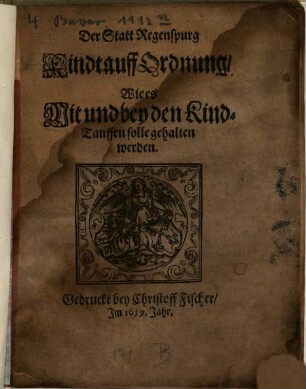 4 Bavar 1992 VI
Der Statt Regenspurg
Kindtauff Ordnung/
Wie es
Mit und bey den Kind-
Tauffen solle gehalten
werden.
Gedruckt bey Christoff Fischer/
Im 1659. Jahr.
B